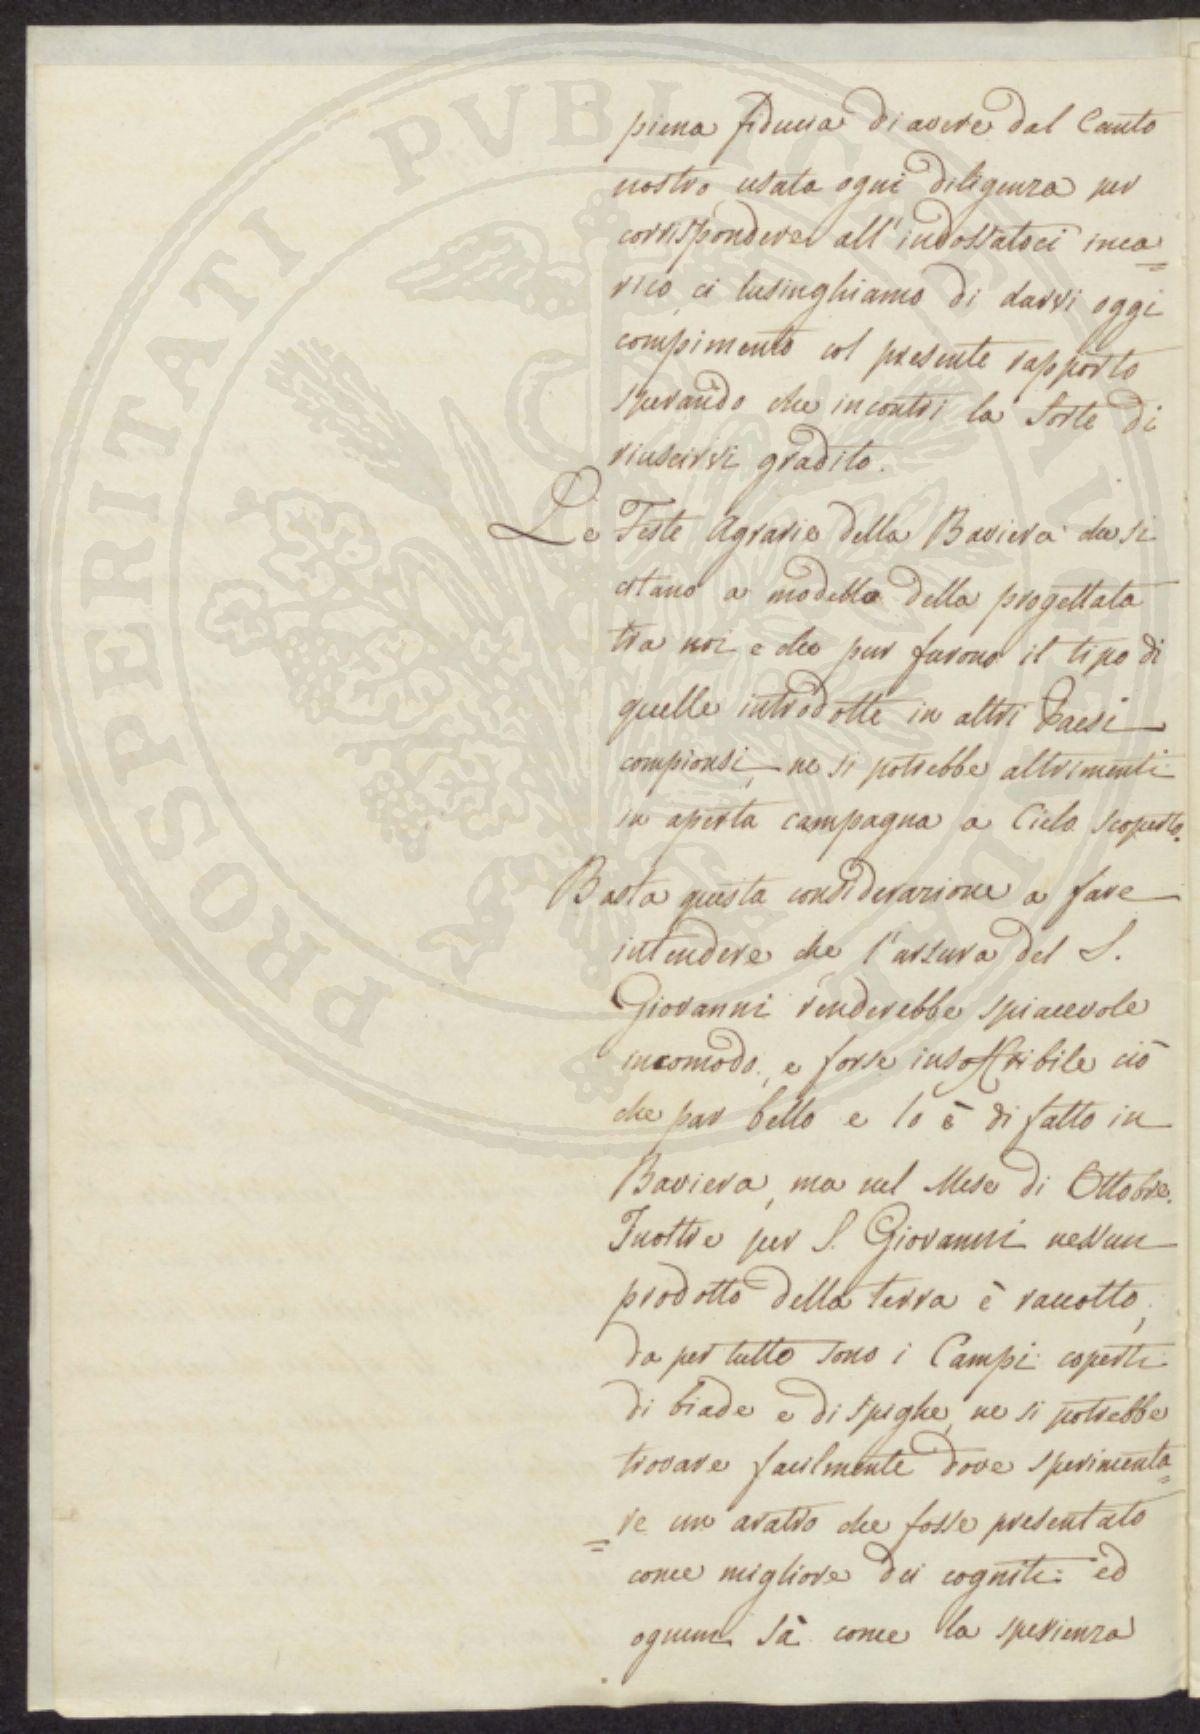 PROSPERITATI PVBLICAE
piena fiducia di avere dal Canto
nostro usata ogni diligenza per
corrispondere all'indossatoci inca=
rico, ci lusinghiamo di darvi oggi
compimento col presente rapporto
sperando che incontri la Sorte di
riuscirvi gradito.
Le Feste Agrarie della Baviera che si
citano a modello della progettata
tra noi e che pur furono il tipo di
quelle introdotte in altri Paesi
compionsi, ne si potrebbe altrimenti
in aperta campagna a Cielo scoperto.
Basta questa considerazione a fare
intendere che l'arsura del S.
Giovanni renderebbe spiacevole
incomodo, e forse insoffribile ciò
che par bello e lo è di fatto in
Baviera, ma nel Mese di Ottobre.
Inoltre per S. Giovanni nessun
prodotto della terra è raccolto,
da per tutto sono i Campi coperti
di biade e di spighe, ne si potrebbe
trovare facilmente dove sperimenta=
=re un aratro che fosse presentato
come migliore dei cogniti: ed
ognun sà come la sperienza